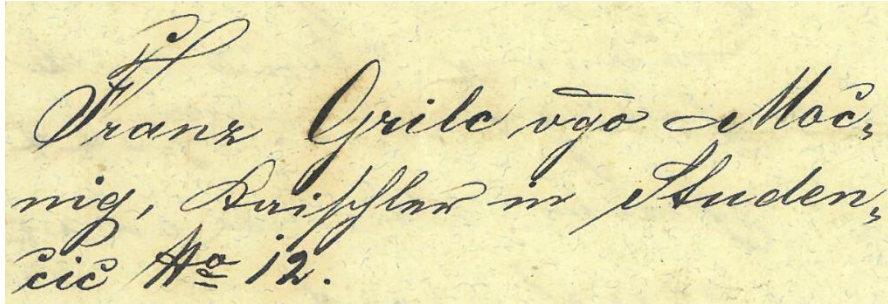 Franz Grilc vgo Moč„
nig, Kaischler in Studen„
čič No 12.